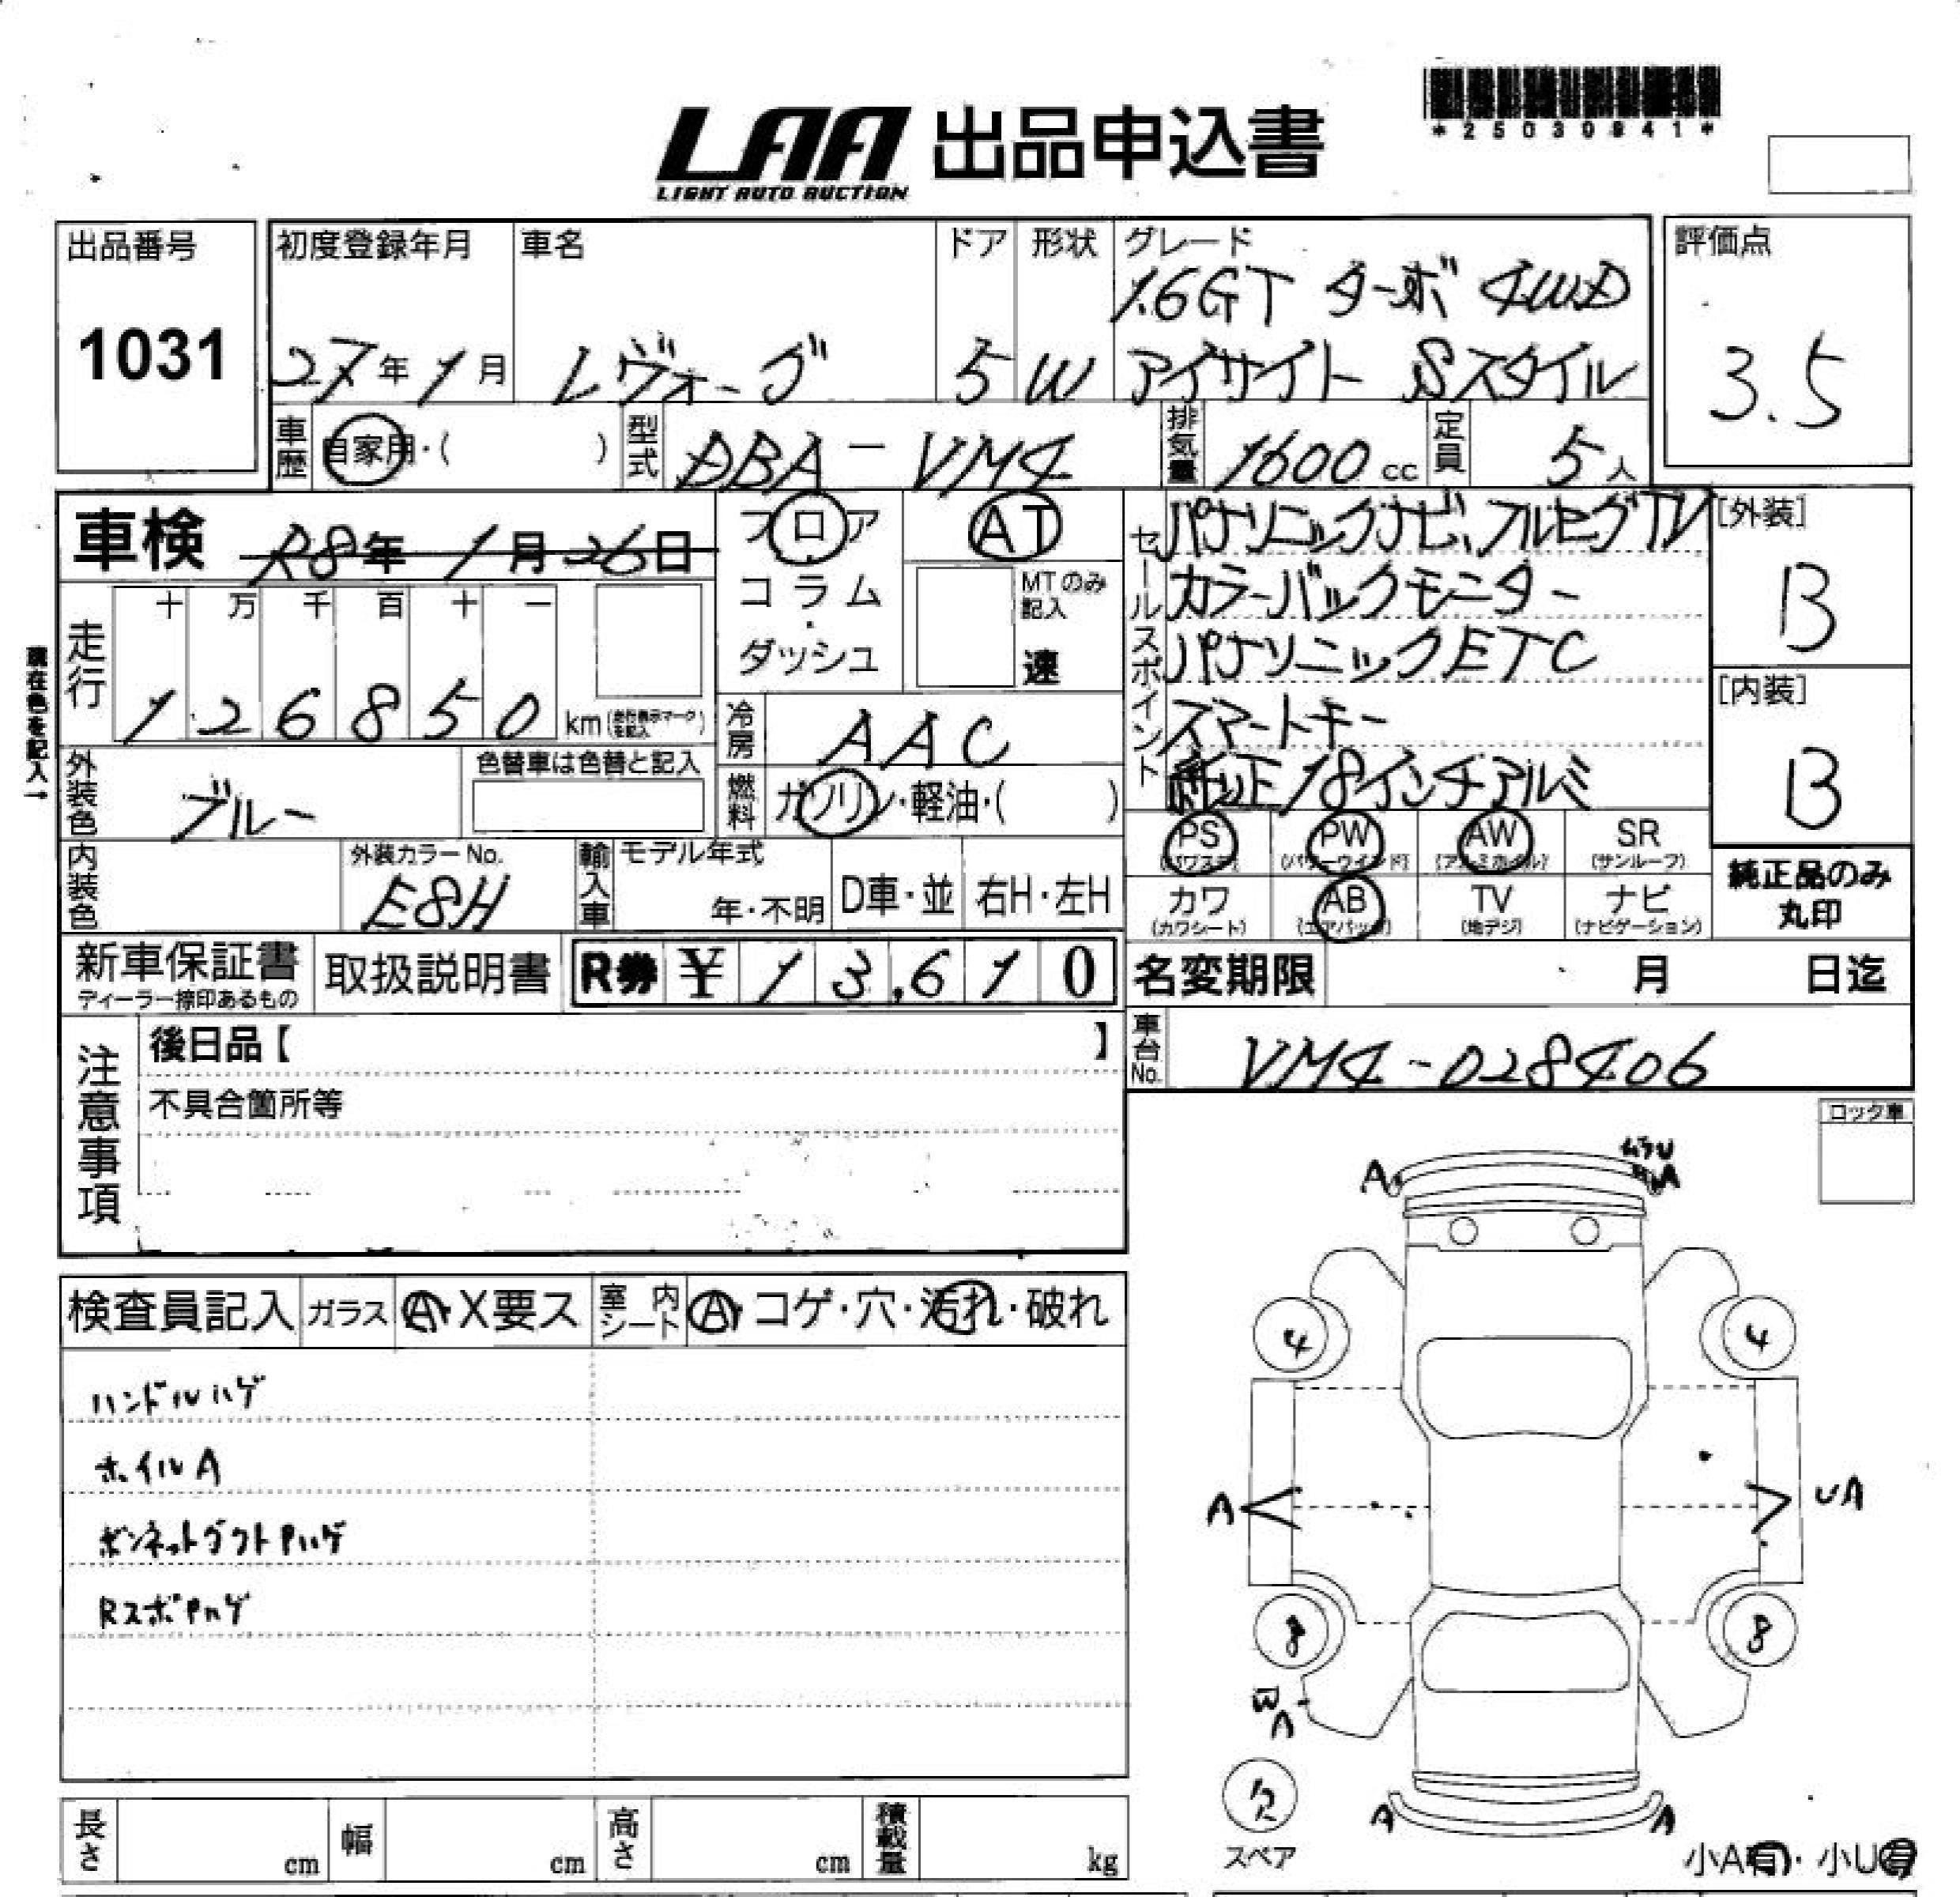 LAA 出品申込書
LIGHT AUTO AUCTION
*25030941*
出品番号
1031
初度登録年月
27年1月
車名
レヴォーグ
ドア
5
形状
W
グレード
1.6GT ターボ 4WD
アイサイト Sスタイル
評価点
3.5
車歴
自家用・( )
型式
DBA-VM4
排気量
1600cc
定員
5人
車検
R8年1月26日
フロア
コラム
・
ダッシュ
AT
MTのみ記入
速
セールスポイント
パナソニックナビ、フルセグTV
カラーバックモニター
パナソニックETC
スマートキー
純正18インチアルミ
[外装]
B
[内装]
B
現在色を記入→
走行
十 万 千 百 十 一
126850 km
冷房
AAC
外装色
ブルー
色替車は色替と記入
燃料
ガソリン・軽油・( )
PS
PW
(パワーウインド)
AW
(アルミホイル)
SR
(サンルーフ)
内装色
外装カラーNo.
E8H
輸入車
モデル年式
年・不明
D車・並
右H・左H
カワ
(カワシート)
AB
(エアバッグ)
TV
(地デジ)
ナビ
(ナビゲーション)
純正品のみ
丸印
新車保証書
ディーラー捺印あるもの
取扱説明書
R券 ¥13,610
名変期限
月 日迄
注意事項
後日品【 】
不具合箇所等
車台No.
VM4-028406
ロック車
検査員記入
ガラス
A・X要ス
室内シート
A・コゲ・穴・汚れ・破れ
ハンドルハゲ
ホイルA
ボンネットダクトPハゲ
RスポPハゲ
A
A
4
4
A
UA
8
8
A
欠
スペア
A
A
小A有・小U有
長さ
cm
幅
cm
高さ
cm
積載量
kg